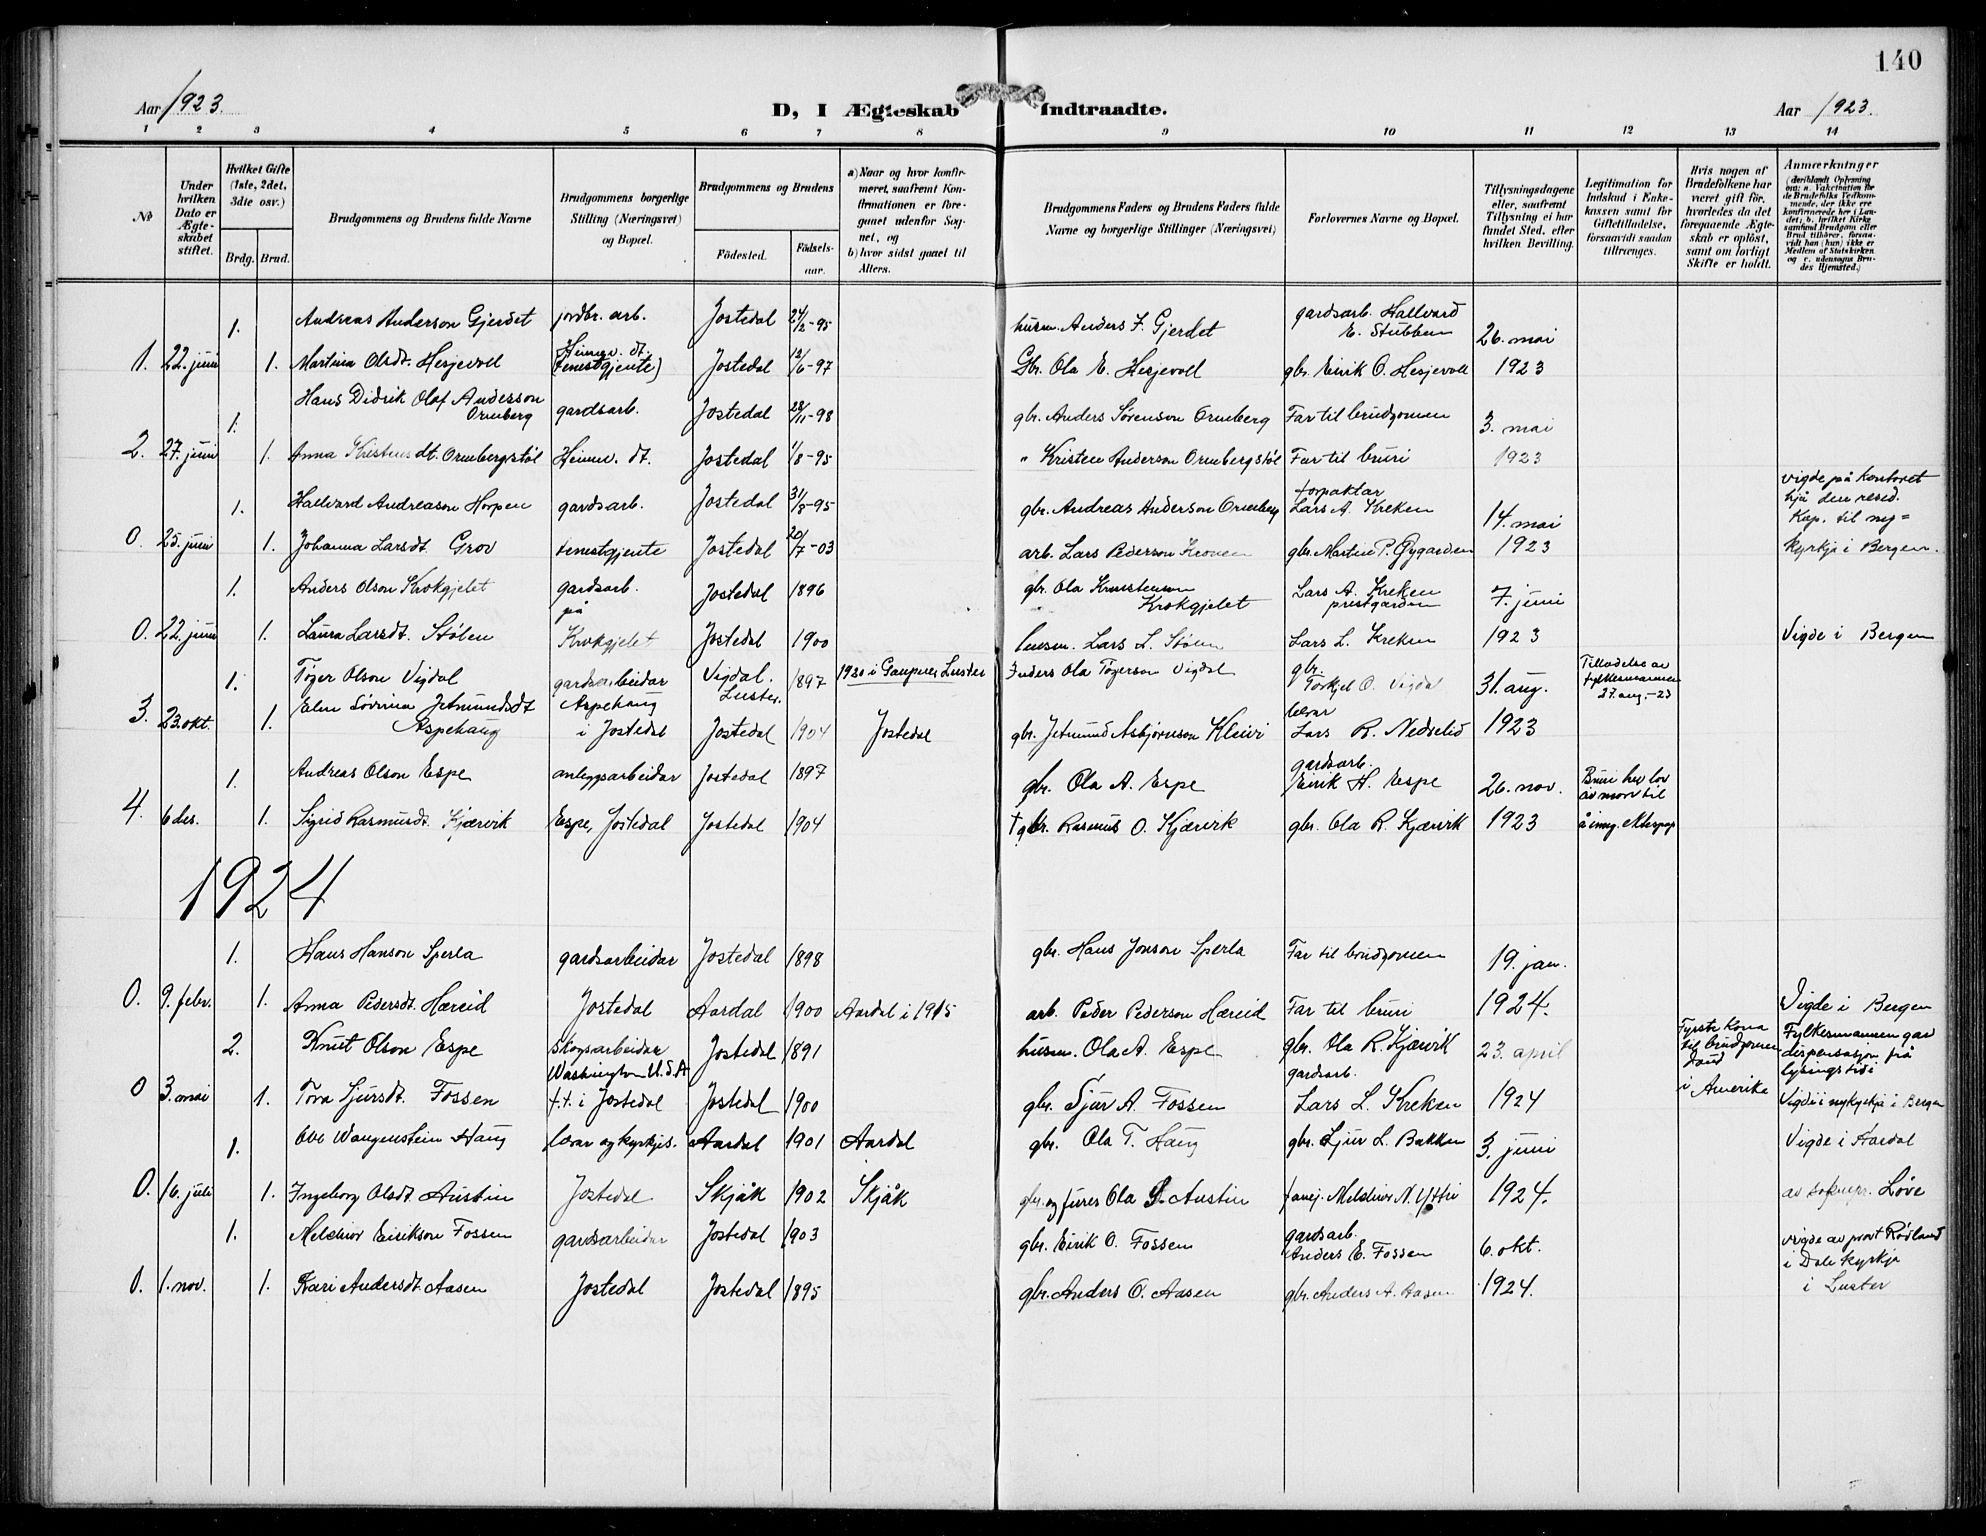 140
Aar 1923.
D, I Ægteskab Indtraadte.
Aar 1923.
1 2 3 4 5 6 7 8 9 10 11 12 13 14
No
Under hvilken Dato er Ægteskabet stiftet.
Hvilket Gifte (1ste, 2det, 3die osv.)
Brdg. Brud.
Brudgommens og Brudens fulde Navne
Brudgommens borgerlige Stilling (Næringsvei) og Bopæl.
Brudgommens og Brudens
Fødested.
Fødselsaar.
a) Naar og hvor konfirmeret, saafremt Konfirmationen er foregaaet udenfor Sognet, og
b) hvor sidst gaaet til Alters.
Brudgommens Faders og Brudens Faders fulde Navne og borgerlige Stillinger (Næringsvei)
Forlovernes Navne og Bopæl.
Tillysningsdagene eller, saafremt Tillysning ei har fundet Sted, efter hvilken Bevilling.
Legitimation for Indskud i Enkekassen samt for Giftetilladelse, forsaavidt saadan tiltrænges.
Hvis nogen af Brudefolkene har været gift før, hvorledes da det foregaaende Ægteskab er opløst, samt om lovligt Skifte er holdt.
Anmærkninger
(deriblandt Oplysning om: a. Vakcination for de Brudefolks Vedkommende, der ikke ere konfirmerede her i Landet; b. hvilket Kirkesamfund Brudgom eller Brud tilhører, forsaavidt han (hun) ikke er Medlem af Statskirken og c. udensogns Brudes Hjemsted.)
1. Andreas Anderson Gjerdet jordbr. arb. Jostedal 24/2-95 husm. Anders J. Gjerdet gardsarb. Hallvard E. Stubben 26. mai
1. 22. juni 1. Martina Olsdt. Hesjevoll Heimev. dt. (tenestgjente) Jostedal 12/6-97 Gbr. Ola E. Hesjevoll gbr. Eirik O. Hesjevoll 1923
1. Hans Didrik Olaf Anderson Ormberg gardsarb. Jostedal 28/11-98 gbr. Anders Sørenson Ormberg Far til brudgomen 3. mai
2. 27. juni 1. Anna Kristensdt. Ormbergstøl Heimev. dt. Jostedal 1/8-95 " Kristen Anderson Ormbergstøl Far til bruri 1923
1. Hallvard Andreason Horpen gardsarb. Jostedal 31/8-95 gbr. Andreas Anderson Ormberg forpaktar Lars A. Kreken 14. mai vigde på kontoret hjå den resid. Kap. til ny=
0. 25. juni 1. Johanna Larsdt. Grov tenestgjente Jostedal 20/7-03 arb. Lars Pederson Kronen gbr. Martin P. Gygarden 1923 kyrkja i Bergen.
1. Anders Olson Krokgjelet gardsarb. på Jostedal 1896 gbr. Ola Kristenson Krokgjelet Lars A. Kreken prestgarden 7. juni
0. 22. juni 1. Laura Larsdt. Stølen Krokgjelet Jostedal 1900 husm. Lars L. Stølen Lars L. Kreken 1923 Vigde i Bergen
1. Tøger Olson Vigdal gardsarbeidar Vigdal, Luster. 1897 1920 i Gaupne, Luster Inders Ola Tøgerson Vigdal gbr. Torkjel O. Vigdal 31. aug. Tilladelse av fylkesmannen 27. aug.-23
3. 23. okt. 1. Elen Sørina Jetmundsdt Aspehaug Aspehaug i Jostedal Jostedal 1904 Jostedal gbr. Jetmund Asbjørnson Kleivi lærar Lars R. Nedrelid 1923
1. Andreas Olson Espe anleggsarbeidar Jostedal 1897 gbr. Ola A. Espe gardsarb. Eirik H. Espe 26. nov. Bruri hev lov av mori til
4. 6 des. 1. Sigrid Rasmusdt. Kjærvik Espe, Jostedal Jostedal 1904 † gbr. Rasmus O. Kjærvik gbr. Ola R. Kjærvik 1923 å inng. ektespap
1924
1. Hans Hanson Sperla gardsarbeidar Jostedal 1898 gbr. Hans Jonson Sperla Far til brudgomen 19. jan.
0. 9. febr. 1. Anna Pedersdt. Hæreid Jostedal Aardal 1900 Aardal i 1915 arb. Peder Pederson Hæreid Far til bruri 1924. Vigde i Bergen
2. Knut Olson Espe skogsarbeidar Washington U.S.A Jostedal 1891 husm. Ola A. Espe gbr. Ola R. Kjærvik 23. april Fyrste kona til brudgomen daud i Amerika Fylkesmannen gav dispensasjon frå lysingstidi
0 3. mai 1. Tora Sjursdt. Fossen f.t. i Jostedal Jostedal 1900 gbr. Sjur A. Fossen gardsarb. Lars L. Kreken 1924 Vigde i nykyrkja i Bergen
1. Ole Wangenstein Haug lærar og kyrkjes. Aardal 1901 Aardal gbr. Ola T. Haug gbr. Sjur L. Bakken 3. juni Vigde i Aardal
0. 16. juli 1. Ingeborg Olsdt Austin Jostedal Skjåk 1902 Skjåk gbr. og furer Ola P. Austin fanej. Melchior N. Yttri 1924. av soknepr. Løve
1. Melchior Eirikson Fossen gardsarbeidar Jostedal 1903 gbr. Eirik O. Fossen gardsarb. Anders E. Fossen 6. okt. vigde av provt Rødland i Dale kyrkja
0. 1. nov. 1. Kari Andersdt. Aasen Jostedal Jostedal 1895 gbr. Anders O. Aasen gbr. Anders A. Aasen 1924. i Luster